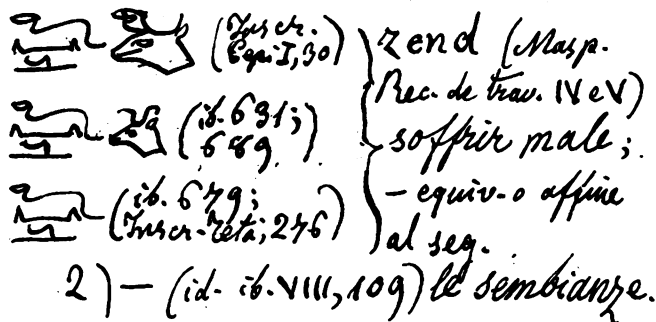 (Inscr.
Pepi I, 30)
(ib. 631;
689.)
(ib. 679;
Inscr. Teta, 276)
zend (Masp.
Rec. de trav. IV e V)
soffrir male;
- equiv. o affine
al seg.
2) — (id. ib. VIII, 109) le sembianze.